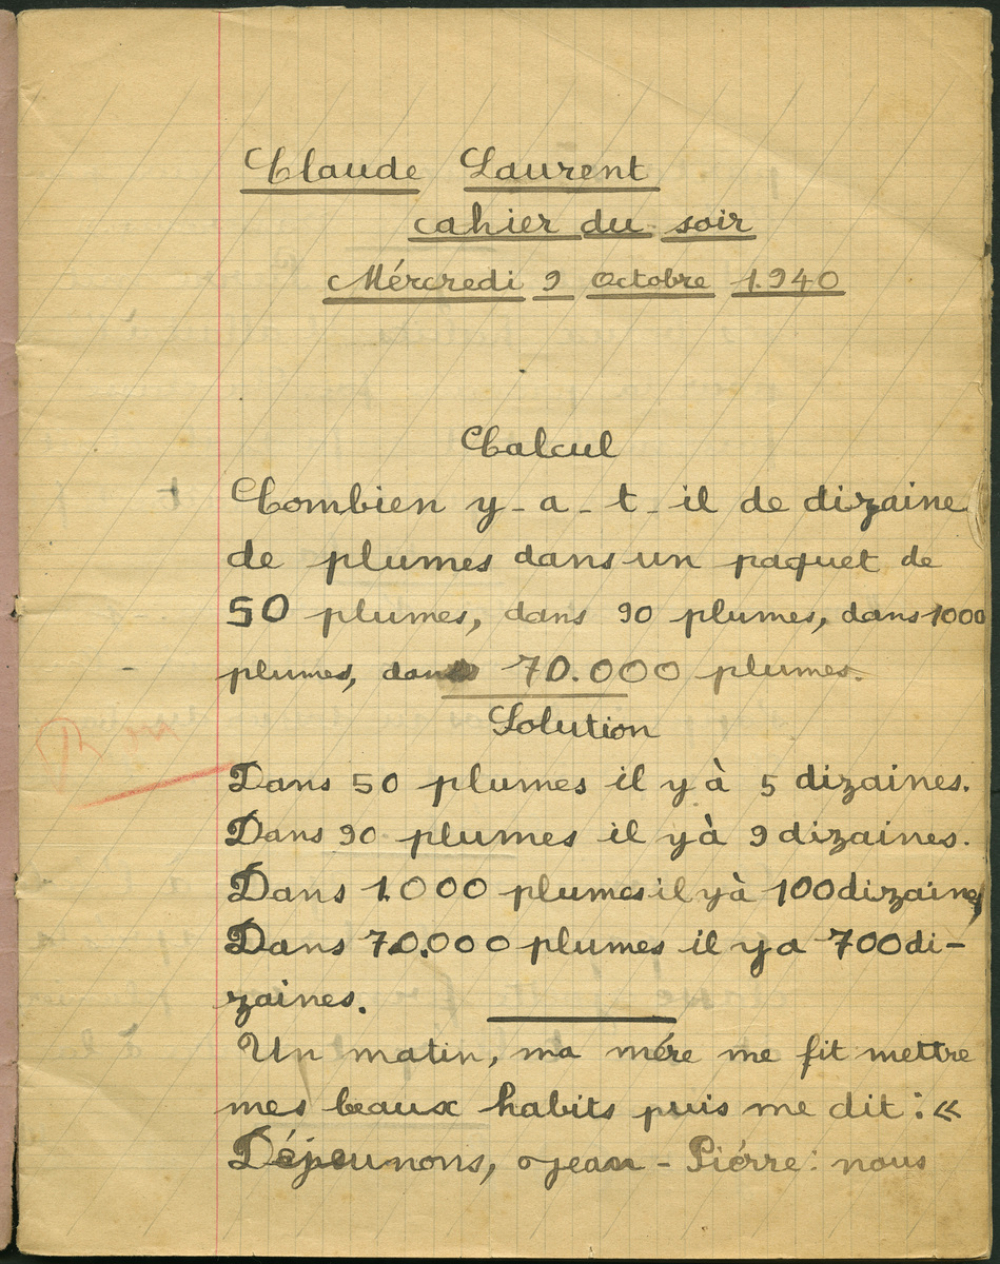 Claude Laurent
cahier du soir
Mércredi 9 Octobre 1.940
Calcul
Combien y-a-t-il de dizaine
de plumes dans un paquet de
50 plumes, dans 90 plumes, dans 1000
plumes, dans 70.000 plumes.
Solution
Dans 50 plumes il y à 5 dizaines.
Dans 90 plumes il y à 9 dizaines.
Dans 1.000 plumes il y à 100 dizaines
Dans 70.000 plumes il y a 700 di-
zaines.
Un matin, ma mére me fit mettre
mes beaux habits puis me dit : «
Déjeunons, Jean-Piérre : nous